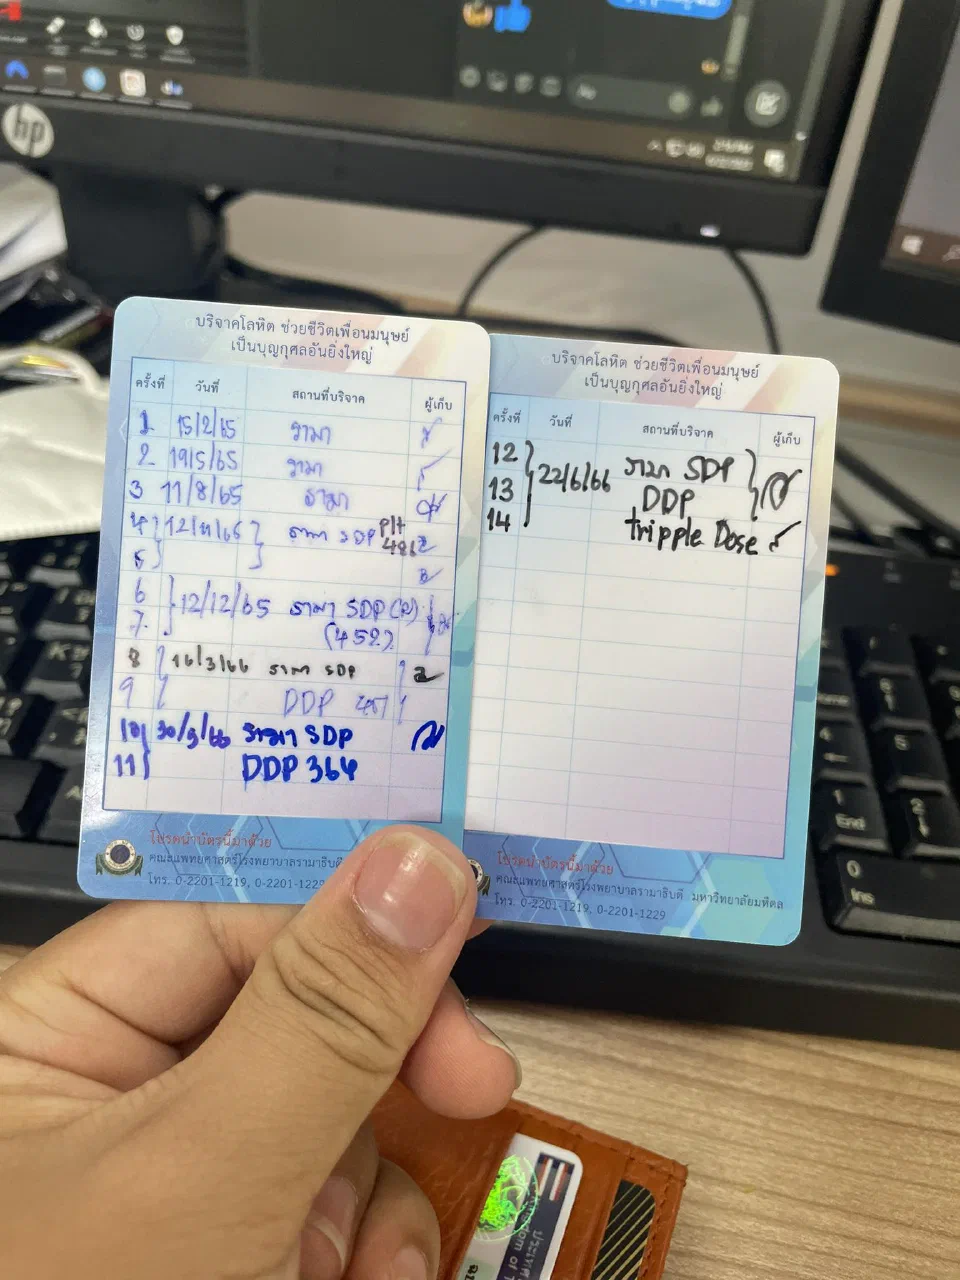 hp
บริจาคโลหิต ช่วยชีวิตเพื่อนมนุษย์
เป็นบุญกุศลอันยิ่งใหญ่
ครั้งที่ วันที่ สถานที่บริจาค ผู้เก็บ
1 15/2/65 รามา
2 19/5/65 รามา
3 11/8/65 รามา
4 12/11/65 รามา SDP Plt
5
6 12/12/65 รามา SDP (2)
7 (452)
8 16/3/66 รามา SDP
9 DDP
10 30/3/66 รามา SDP
11 DDP 364
โปรดนำบัตรนี้มาด้วย
คณะแพทยศาสตร์โรงพยาบาลรามาธิบดี
โทร. 0-2201-1219, 0-2201-1229
บริจาคโลหิต ช่วยชีวิตเพื่อนมนุษย์
เป็นบุญกุศลอันยิ่งใหญ่
ครั้งที่ วันที่ สถานที่บริจาค ผู้เก็บ
12 22/6/66 รามา SDP
13 DDP
14 tripple Dose
โปรดนำบัตรนี้มาด้วย
คณะแพทยศาสตร์โรงพยาบาลรามาธิบดี มหาวิทยาลัยมหิดล
โทร. 0-2201-1219, 0-2201-1229
1
End
2
0
Ins